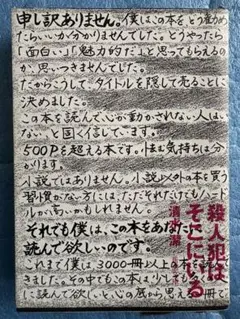 申し訳ありません。僕はこの本をどう勧め
たらいいか分かりませんでした。どうやったら
「面白い」「魅力的だ」と思ってもらえるの
か、思いつきませんでした。
だからこうして、タイトルを隠して売ることに
決めました。
この本を読んで心が動かされない人はい
ない、と固く信じています。
500Pを超える本です。怯む気持ちは分
かります。
小説ではありません。小説以外の本を買う
習慣がない方には、ただそれだけでもハード
ルが高いかもしれません。
それでも僕は、この本をあな
読んで欲しいのです。
これまで僕は3000冊以上
きました。その中でもこの本は
に読んで欲しいと心の底から思える
殺人犯は
そこにいる
清水潔